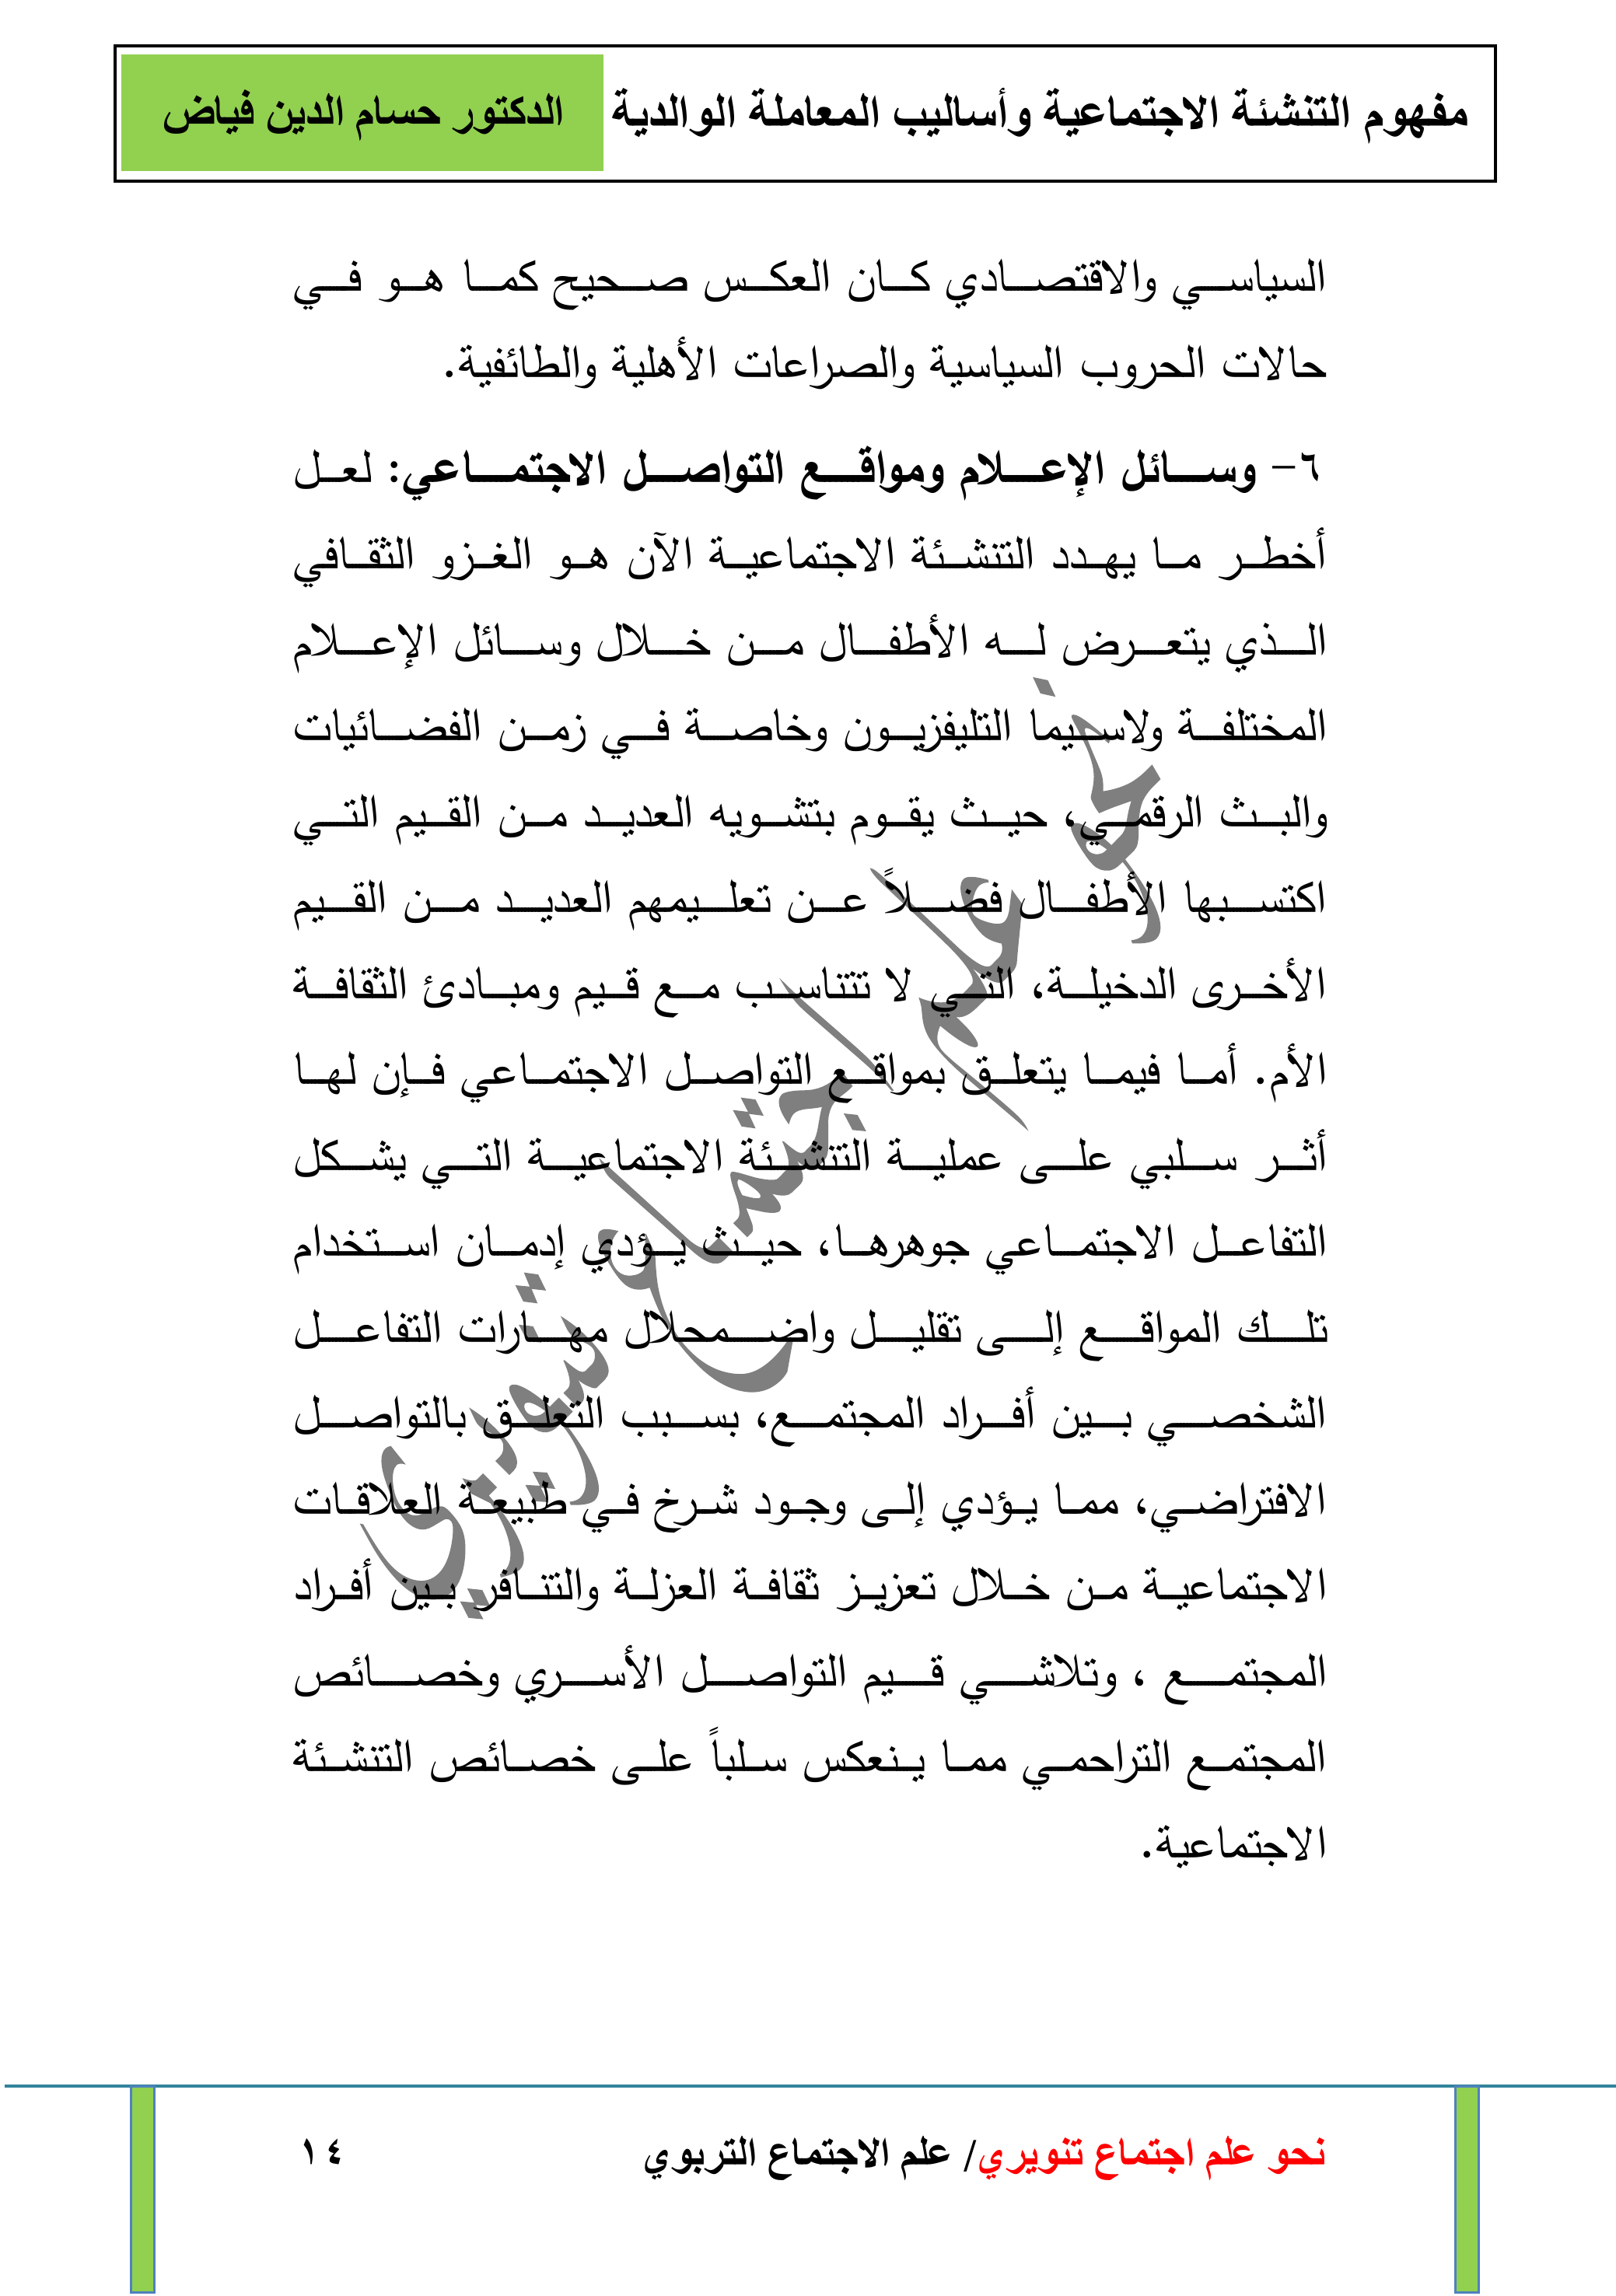 مفهوم التنشئة الاجتماعية وأساليب المعاملة الوالدية الدكتور حسام الدين فياض
السياسي والاقتصادي كان العكس صحيح كما هو في
حالات الحروب السياسية والصراعات الأهلية والطائفية.
٦- وسائل الإعلام ومواقع التواصل الاجتماعي: لعل
أخطر ما يهدد التنشئة الاجتماعية الآن هو الغزو الثقافي
الذي يتعرض له الأطفال من خلال وسائل الإعلام
المختلفة ولاسيما التليفزيون وخاصة في زمن الفضائيات
والبث الرقمي، حيث يقوم بتشويه العديد من القيم التي
اكتسبها الأطفال فضلاً عن تعليمهم العديد من القيم
الأخرى الدخيلة، التي لا تتناسب مع قيم ومبادئ الثقافة
الأم. أما فيما يتعلق بمواقع التواصل الاجتماعي فإن لها
أثر سلبي على عملية التنشئة الاجتماعية التي يشكل
التفاعل الاجتماعي جوهرها، حيث يؤدي إدمان استخدام
تلك المواقع إلى تقليل واضمحلال مهارات التفاعل
الشخصي بين أفراد المجتمع، بسبب التعلق بالتواصل
الافتراضي، مما يؤدي إلى وجود شرخ في طبيعة العلاقات
الاجتماعية من خلال تعزيز ثقافة العزلة والتنافر بين أفراد
المجتمع ، وتلاشي قيم التواصل الأسري وخصائص
المجتمع التراحمي مما ينعكس سلباً على خصائص التنشئة
الاجتماعية.
نحو علم اجتماع تنويري
نحو علم اجتماع تنويري/ علم الاجتماع التربوي ١٤